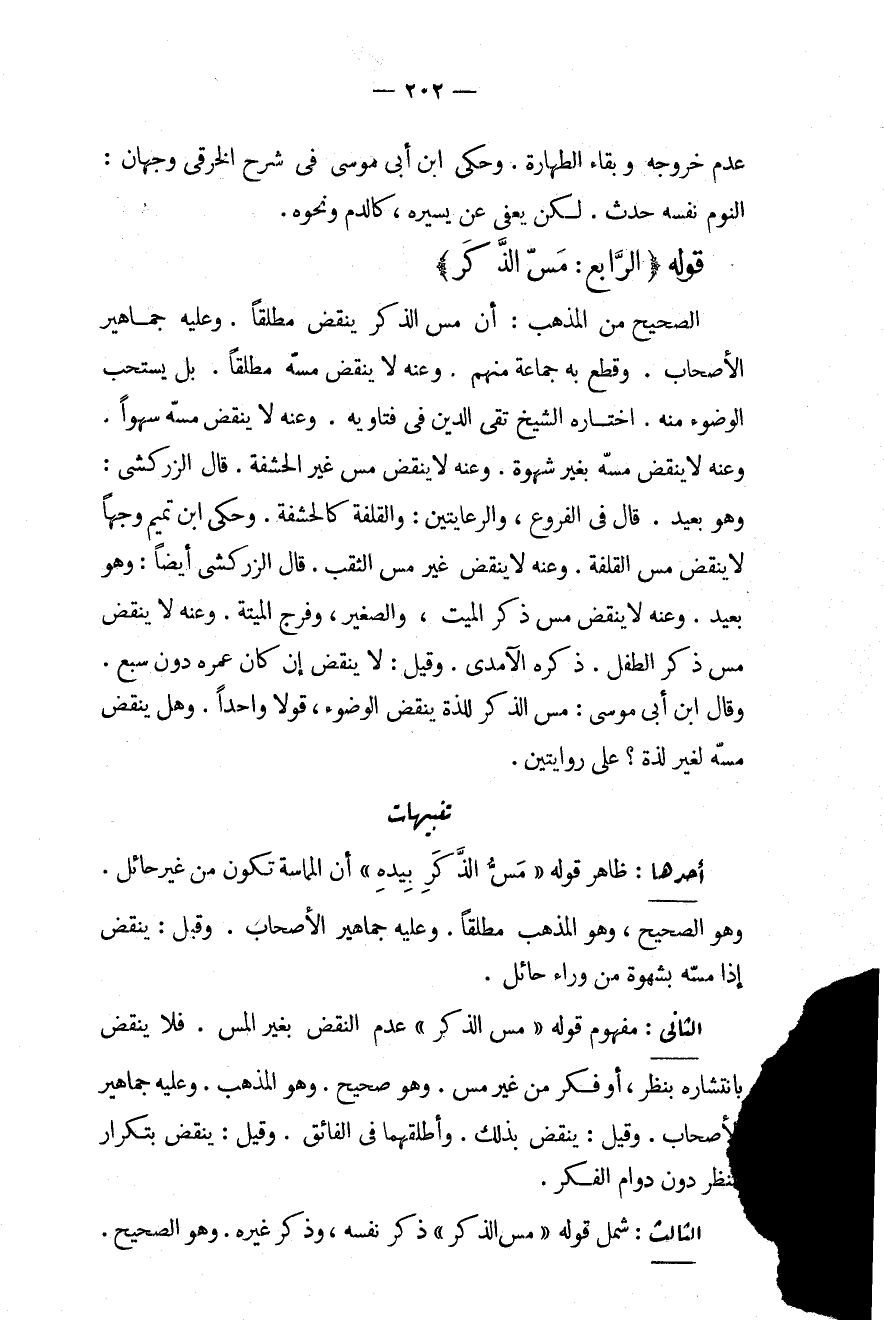 — ٢٠٢ —
عدم خروجه و بقاء الطهارة . وحكى ابن أبى موسى فى شرح الخرقى وجهان :
النوم نفسه حدث . لـكن يعفى عن يسيره ، كالدم ونحوه .
قوله ﴿ الرَّابع : مَسّ الذَّكَر ﴾
الصحيح من المذهب : أن مس الذكر ينقض مطلقاً . وعليه جمـاهير
الأصحاب . وقطع به جماعة منهم . وعنه لا ينقض مسّه مطلقاً . بل يستحب
الوضوء منه . اختـاره الشيخ تقى الدين فى فتاويه . وعنه لا ينقض مسّه سهواً .
وعنه لاينقض مسّه بغير شهوة . وعنه لاينقض مس غير الحشفة . قال الزركشى :
وهو بعيد . قال فى الفروع ، والرعايتين : والقلفة كالحشفة . وحكى ابن تميم وجهاً
لاينقض مس القلفة . وعنه لاينقض غير مس الثقب . قال الزركشى أيضاً : وهو
بعيد . وعنه لاينقض مس ذكر الميت ، والصغير ، وفرج الميتة . وعنه لا ينقض
مس ذكر الطفل . ذكره الآمدى . وقيل : لا ينقض إن كان عمره دون سبع .
وقال ابن أبى موسى : مس الذكر للذة ينقض الوضوء ، قولا واحداً . وهل ينقض
مسّه لغير لذة ؟ على روايتين .
تنبيهات
أحدها : ظاهر قوله « مَسُّ الذَّكَرِ بِيدهِ » أن الماسة تكون من غير حائل .
وهو الصحيح ، وهو المذهب مطلقاً . وعليه جماهير الأصحاب . وقيل : ينقض
إذا مسّه بشهوة من وراء حائل .
الثانى : مفهوم قوله « مس الذكر » عدم النقض بغير المس . فلا ينقض
بانتشاره بنظر ، أو فـكر من غير مس . وهو صحيح . وهو المذهب . وعليه جماهير
لأصحاب . وقيل : ينقض بذلك . وأطلقهما فى الفائق . وقيل : ينقض بتـكرار
لنظر دون دوام الفـكر .
الثالث : شمل قوله « مس الذكر » ذكر نفسه ، وذكر غيره . وهو الصحيح .